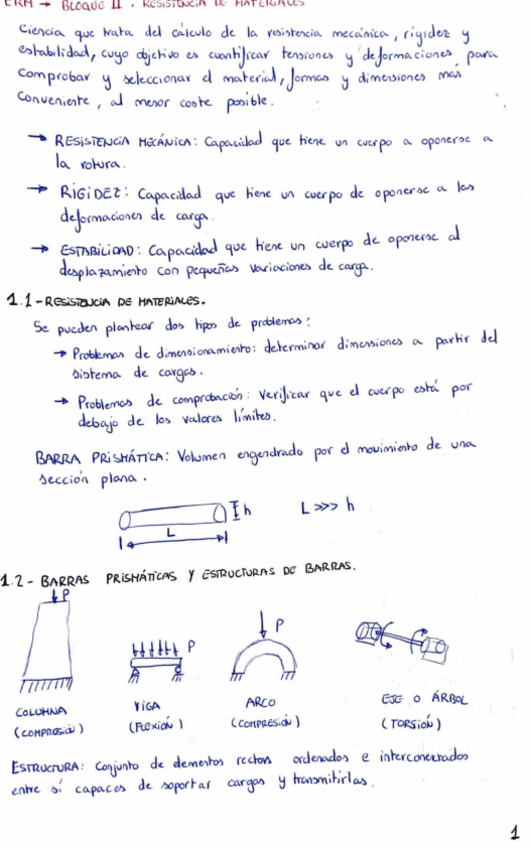 ERM → BLOQUE II. RESISTENCIA DE MATERIALES
Ciencia que trata del cálculo de la resistencia mecánica, rigidez y
estabilidad, cuyo objetivo es cuantificar tensiones y deformaciones para
comprobar y seleccionar el material, formas y dimensiones más
conveniente, al menor coste posible.
→ RESISTENCIA MECÁNICA: Capacidad que tiene un cuerpo a oponerse a
la rotura.
→ RIGIDEZ: Capacidad que tiene un cuerpo de oponerse a las
deformaciones de carga.
→ ESTABILIDAD: Capacidad que tiene un cuerpo de oponerse al
desplazamiento con pequeñas variaciones de carga.
1.1-RESISTENCIA DE MATERIALES.
Se pueden plantear dos tipos de problemas:
→ Problemas de dimensionamiento: determinar dimensiones a partir del
sistema de cargas.
→ Problemas de comprobación: Verificar que el cuerpo está por
debajo de los valores límites.
BARRA PRISMÁTICA: Volumen engendrado por el movimiento de una
sección plana.
h L >>> h
L
1.2- BARRAS PRISMÁTICAS Y ESTRUCTURAS DE BARRAS.
P
P
P
COLUMNA
(COMPRESIÓN)
VIGA
(FLEXIÓN)
ARCO
(COMPRESIÓN)
EJE O ÁRBOL
(TORSIÓN)
ESTRUCTURA: Conjunto de elementos rectos ordenados e interconectados
entre sí capaces de soportar cargas y transmitirlas.
1